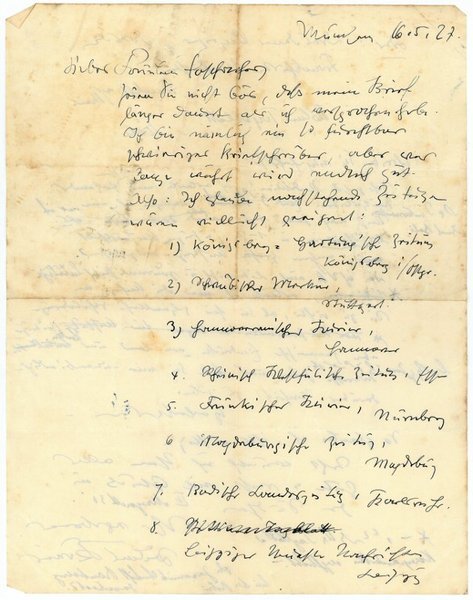 München 16.5.27.
Lieber
seien Sie nicht bös, daß mein Brief
länger dauert als ich versprochen habe.
Ich bin nämlich ein so furchtbar
schwieriger Briefschreiber, aber was
lange währt wird endlich gut.
Also: Ich glaube nachstehende Zeitungen
wären vielleicht geeignet:
1) Königsberg = Hartung'sche Zeitung
Königsberg i/Ospr.
2) Schwäbischer Merkur,
Stuttgart.
3) Hannoveranischer Kurier,
Hannover
4. Rheinisch Westfälische Zeitung, Essen
5. Fränkischer Kurier, Nürnberg
6 Magdeburgische Zeitung,
Magdeburg
7. Badische Landeszeitung, Karlsruhe.
8.
Leipziger Neueste Nachrichten
Leipzig